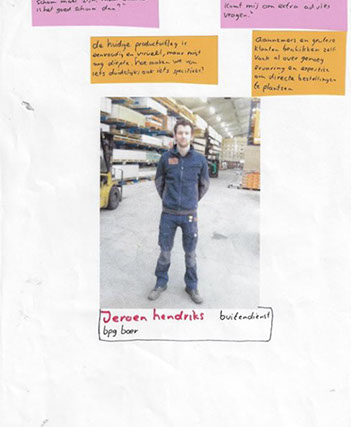 is het goed schuin dan?"
kunt mij som extra advies
vragen."
de huidige productuitleg is
eenvoudig en visueel, maar mist
enig diepte, hoe maken we van
iets duidelijks ook iets specifieks?
Aannemers en grotere
klanten beschikken zelf
vaak al over genoeg
ervaring en expertise
om directe bestellingen
te plaatsen
Jeroen hendriks buitendienst
bpg boer